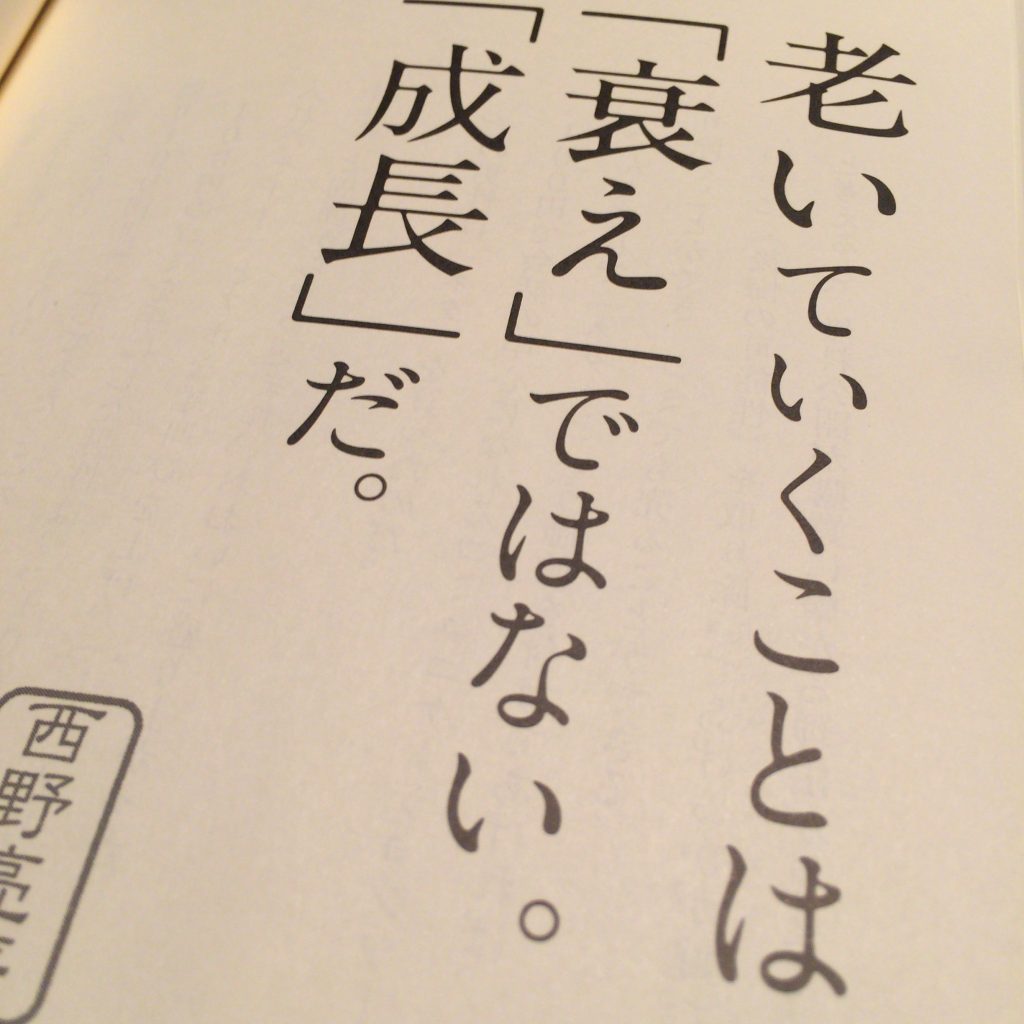 老いていくことは
「衰え」ではない。
「成長」だ。
西野亮